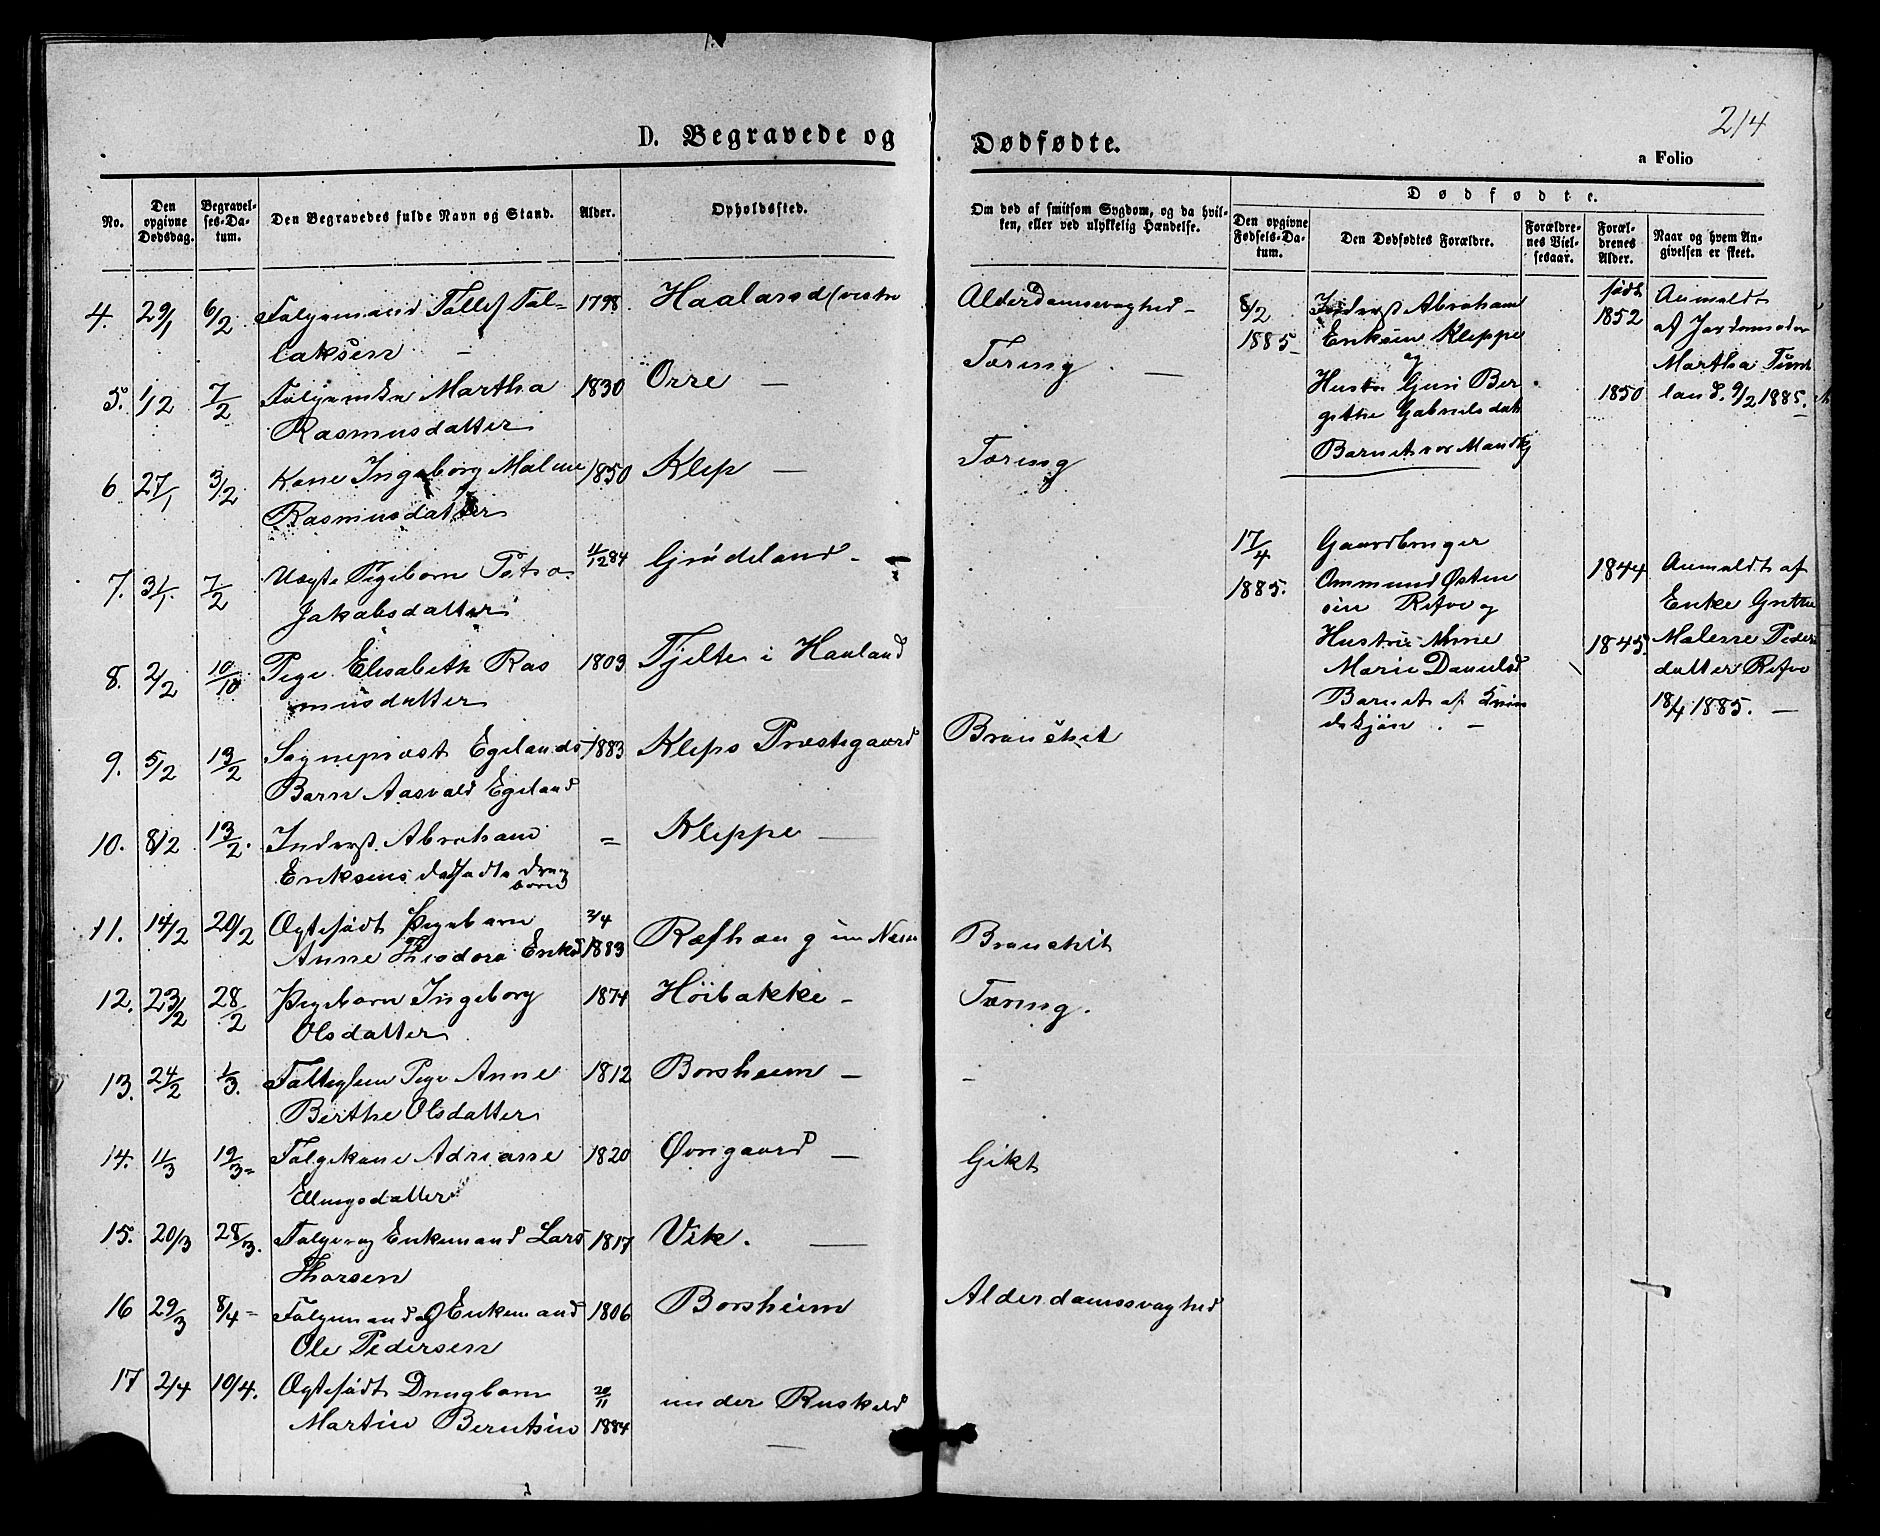 214
D. Begravede og Dødfødte.
a Folio
No.
Den opgivne Dødsdag.
Begravelses-Datum.
Den Begravedes fulde Navn og Stand.
Alder.
Opholdssted.
Om død af smitsom Sygdom, og da hvilken, eller ved ulykkelig Hændelse.
Dødfødte.
Den opgivne Fødsels-Datum.
Den Dødfødtes Forældre.
Forældrenes Vielsesaar.
Forældrenes Alder.
Naar og hvem Angivelsen er skeet.
4. 29/1 6/2 Følgemand Tollef Tol- 1798 Haaland (vestre Alderdomssvaghed -
laksen -
5. 1/2 7/2 Følgemke Martha 1830 Orre - Tæring. -
Rasmusdatter
6 27/1 3/2 Kone Ingeborg Malene 1850 Klep - Tæring
Rasmusdatter
7. 31/1. 7/2 Uægte Pigebarn Petra 11/12 84 Grødeland -
Jakobsdatter
8. 2/2 10/10 Pige Elisabeth Ras 1803 Tjelte i Haaland
musdatter
9. 5/2 13/2 Sogneprest Egelands 1883 Kleps Prestegaard Bronchit
Barn Aasvald Egeland
10. 8/2 13/2. Inderst Abraham = Kleppe -
Eriksens dødfødte dreng
barn
11. 14/2 20/2 Ægtefødt Pigebarn 3/4 Refhæug im Næse Bronchit
Anne Theodora Eriksd 1883
12. 23/2 28/2 Pigebarn Ingeborg 1874 Höibakke - Tæring.
Olsdatter
13. 24/2 1/3. Fattiglem Pige Anne 1812 Borsheim - -
Berthe Olsdatter
14. 11/3 19/3 = Følgekone Adrianne 1820 Øvregaard - Gikt
Ellingsdatter
15. 20/3 28/3. Følge og Enkemand Lars 1817 Vik. -
Thorsen
16 29/3 8/4 - Følgemand og Enkemand 1806 Borsheim Alderdomssvaghed
Ole Pedersen
17 2/4 10/4. Ægtefødt Drengbarn 20/11 under Ruskeld
Martin Berntsen 1884 -
8/2
1885 -
Inderst Abraham
Eriksen Kleppe
og
Hustru Guri Ber
githe Gabrielsdatt
Barnet var Mandkj
født
1852
1850
Anmeldt
af Jordemoder
Martha Tunt
land. 9/2 1885.
17/4
1885.
Gaardbruger
Ommund Østen
sen Refve og
Hustru Anne
Marie Danielsd
Barnet af Kvin
dekjøn. -
1844
1845.
Anmeldt af
Enke Grethe
Malene Peders
datter Refve
18/4 1885. -